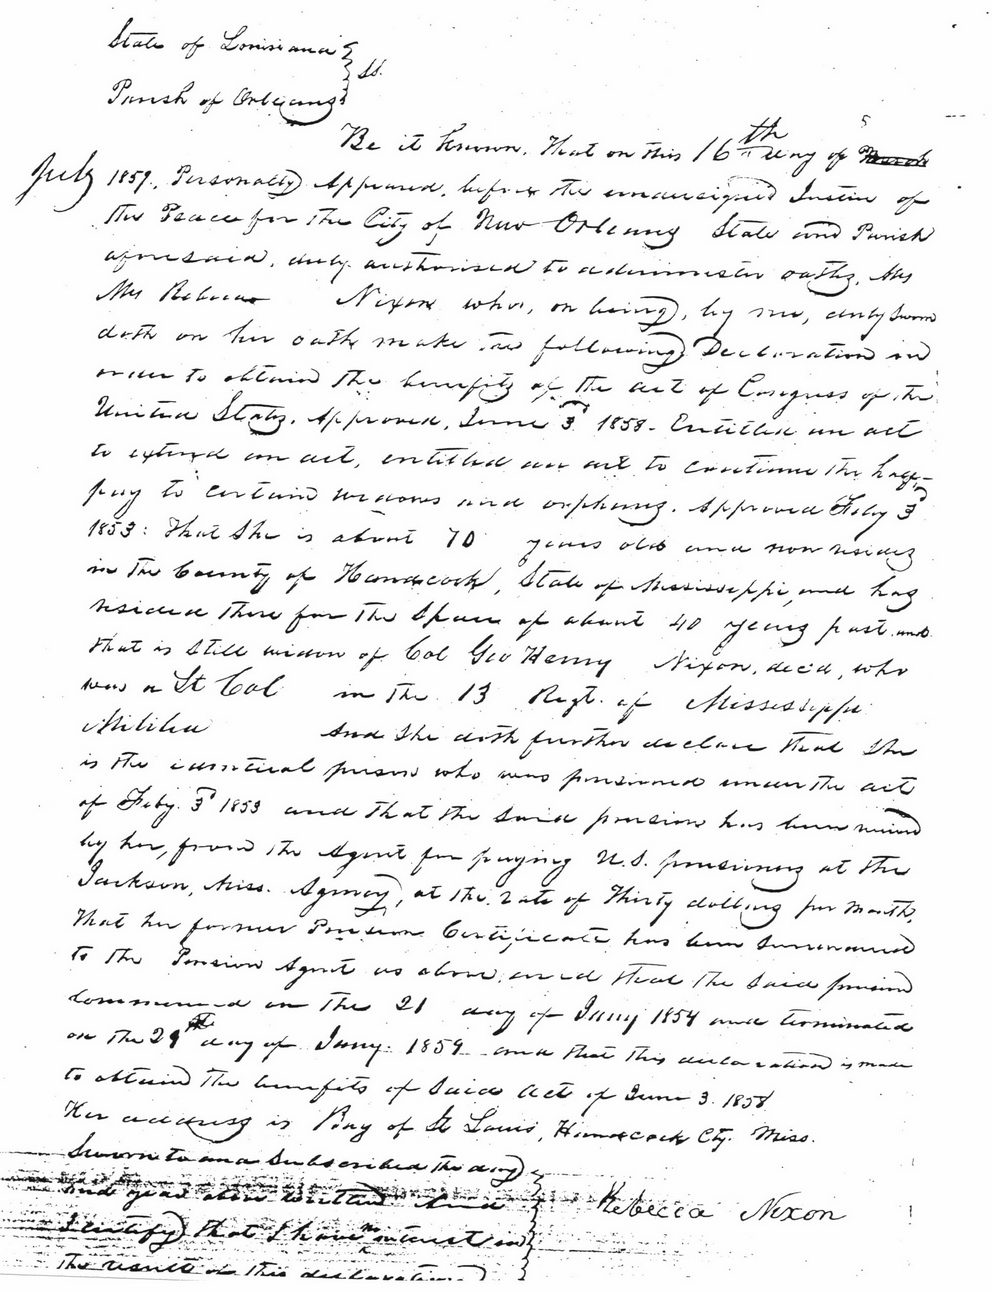 State of Louisiana } ss.
Parish of Orleans }
Be it known, that on this 16th day of March
July 1859, Personally Appeared, before the undersigned Justice of
the Peace for the City of New Orleans State and Parish
aforesaid, duly authorised to administer oaths, Mrs
Mrs Rebecca Nixon who, on being, by me, duly sworn
doth on her oath make the following Declaration in
order to obtain the benefits of the act of Congress of the
United States, Approved, June 3d 1858. Entitled an act
to extend an act, entitled an act to continue the half-
pay to certain widows and orphans. Approved Feby 3d
1853: That she is about 70 years old and now resides
in the County of Handcock, State of Mississippi, and has
resided there for the space of about 40 years past and
that is still widow of Col Geo Henry Nixon, dec'd, who
was a Lt Col in the 13 Regt. of Mississippi
Militia And she doth further declare that she
is the identical person who was pensioned under the act
of Feby. 3d 1853 and that the said pension has been received
by her, from the Agent for paying U.S. pensioners at the
Jackson, Miss. Agency, at the rate of Thirty dollars per month,
that her former Pension Certificate has been surrendered
to the Pension Agent as above, and that the said pension
commenced on the 21 day of Jany 1854 and terminated
on the 29th day of Jany. 1859 and that this declaration is made
to obtain the benefits of said Act of June 3. 1858
Her address is Bay of St Louis, Handcock Cty. Miss.
Sworn to and Subscribed the day }
and year above written And }
I certify that I have no interest in } Rebecca Nixon
the result of this declaration }